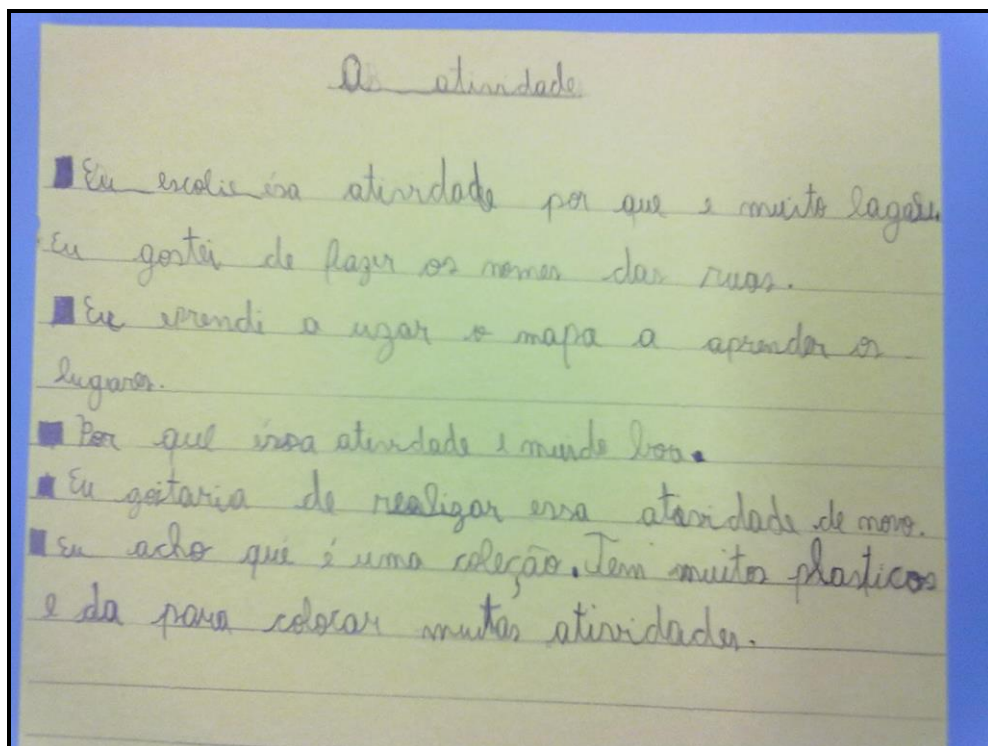 As atividade
Eu escolie isa atividade por que e muito lagau.
Eu gostei de fazer os nomes das ruas.
Eu prendi a uzar o mapa a aprender os
lugares.
Por que issa atividade e muido boa.
Eu gostaria de realizar essa atividade de novo.
Eu acho que é uma coleção. Tem muitos plasticos
e da para colocar muitas atividades.